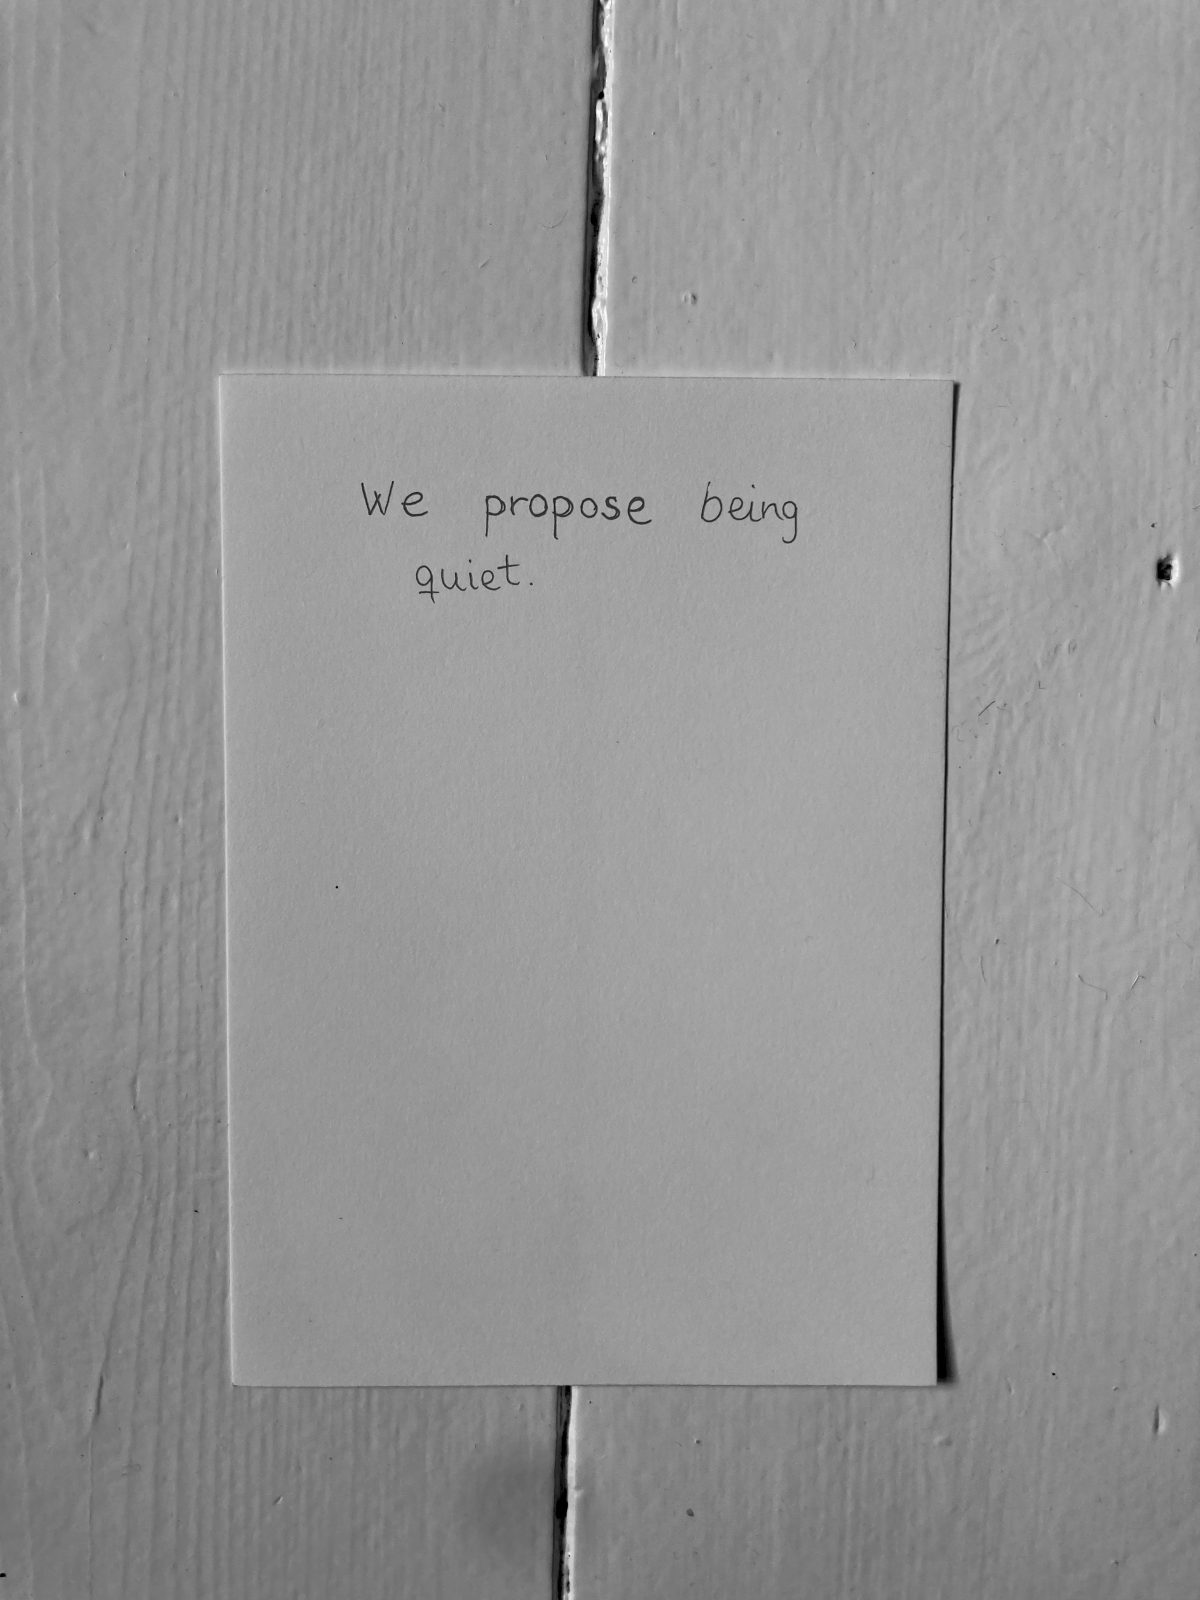 We propose being
quiet.